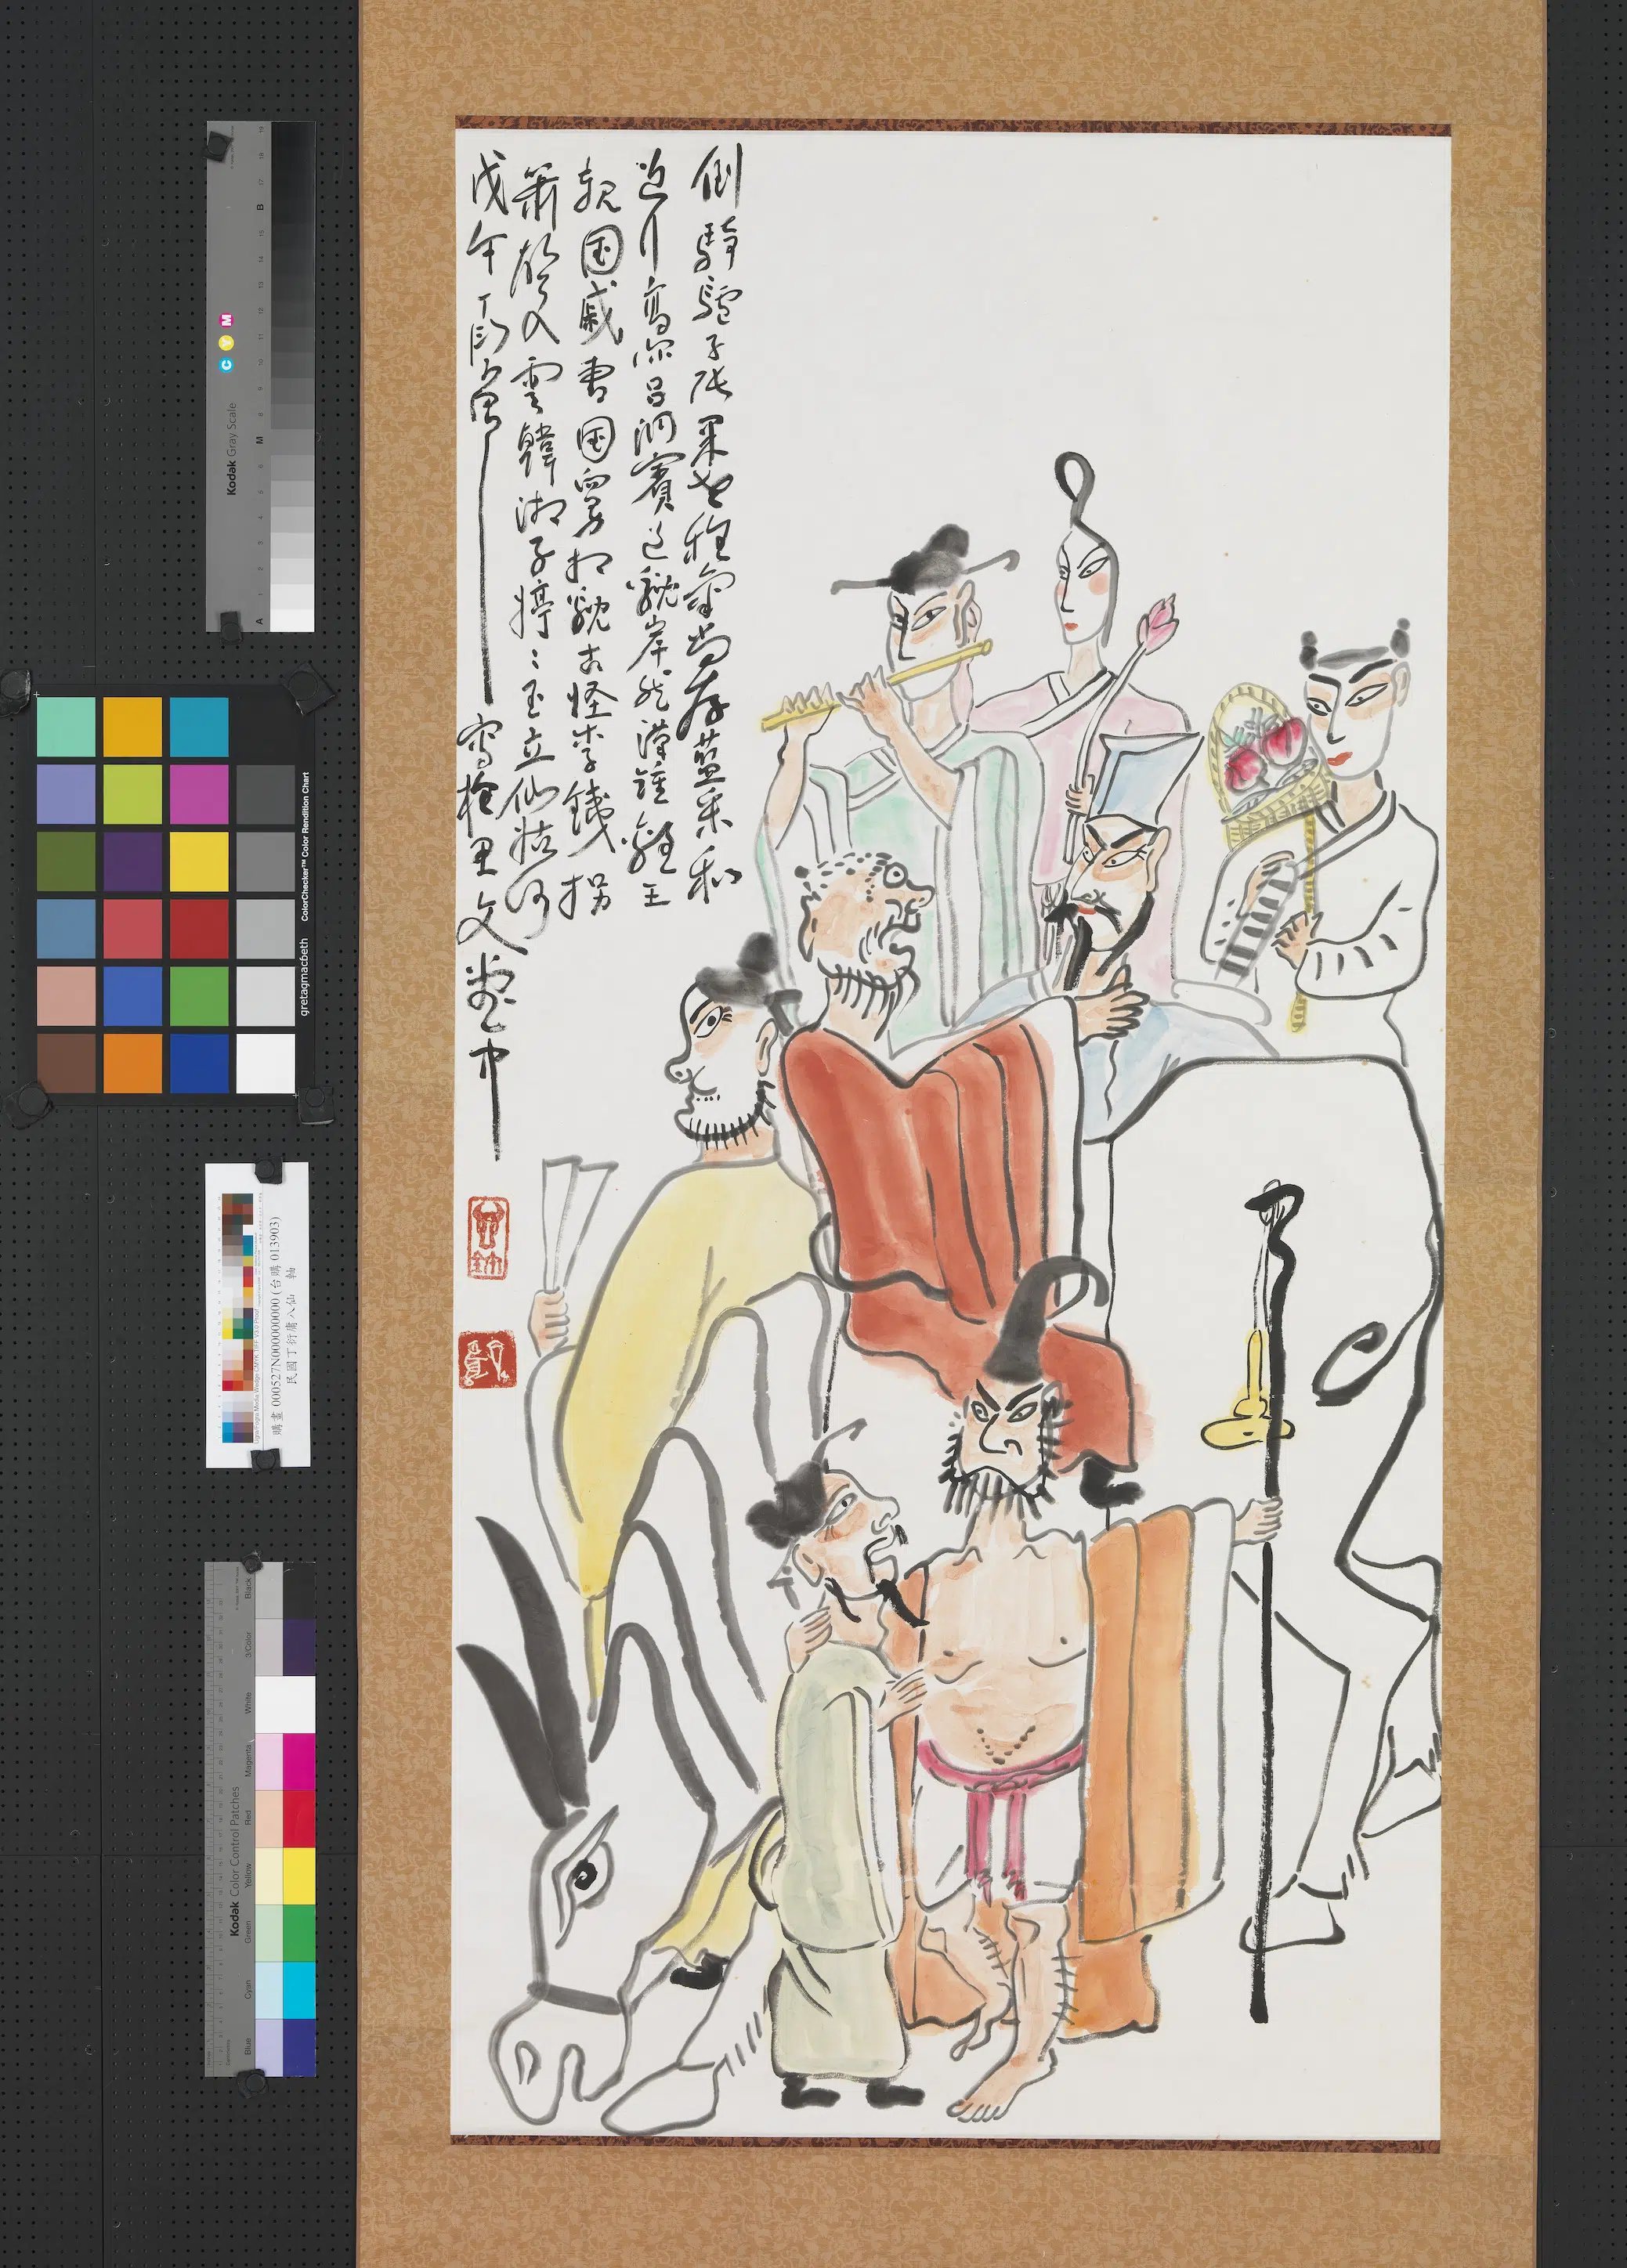 倒騎驢子張果老稚氣尚存藍采和
道行高深呂洞賓道貌岸然漢鍾離王
親国戚曹国舅相貌古怪李鐵拐
簫聲入雲韓湘子婷〻玉立仙姑何
戊午丁衍庸寫於 文堂中
Kodak Gray Scale
C Y M
A 1 2 3 4 5 6 M 8 9 10 11 12 13 14 15 B 17 18 19
ColorChecker™ Color Rendition Chart
gretagmacbeth
購畫 000527N000000000 (台購 013903)
民國丁衍庸八仙 軸
Kodak Color Control Patches
Blue Cyan Green Yellow Red Magenta White 3/Color Black